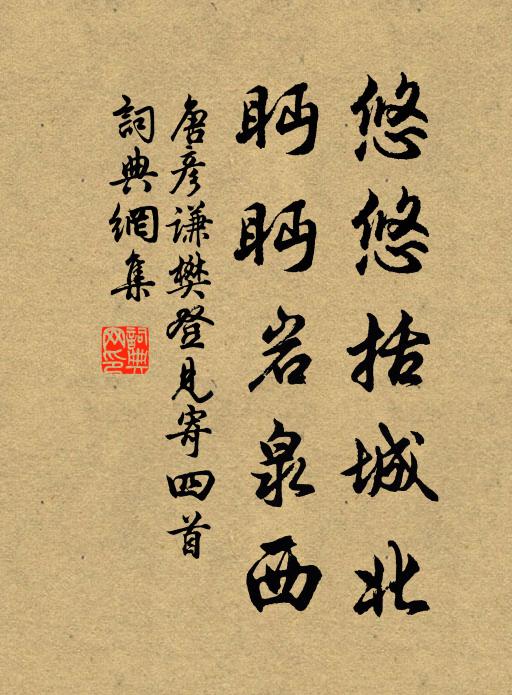 悠悠括城北
眄眄岩泉西
唐彦谦樊登見寄四首
詞典網集
詞典網印